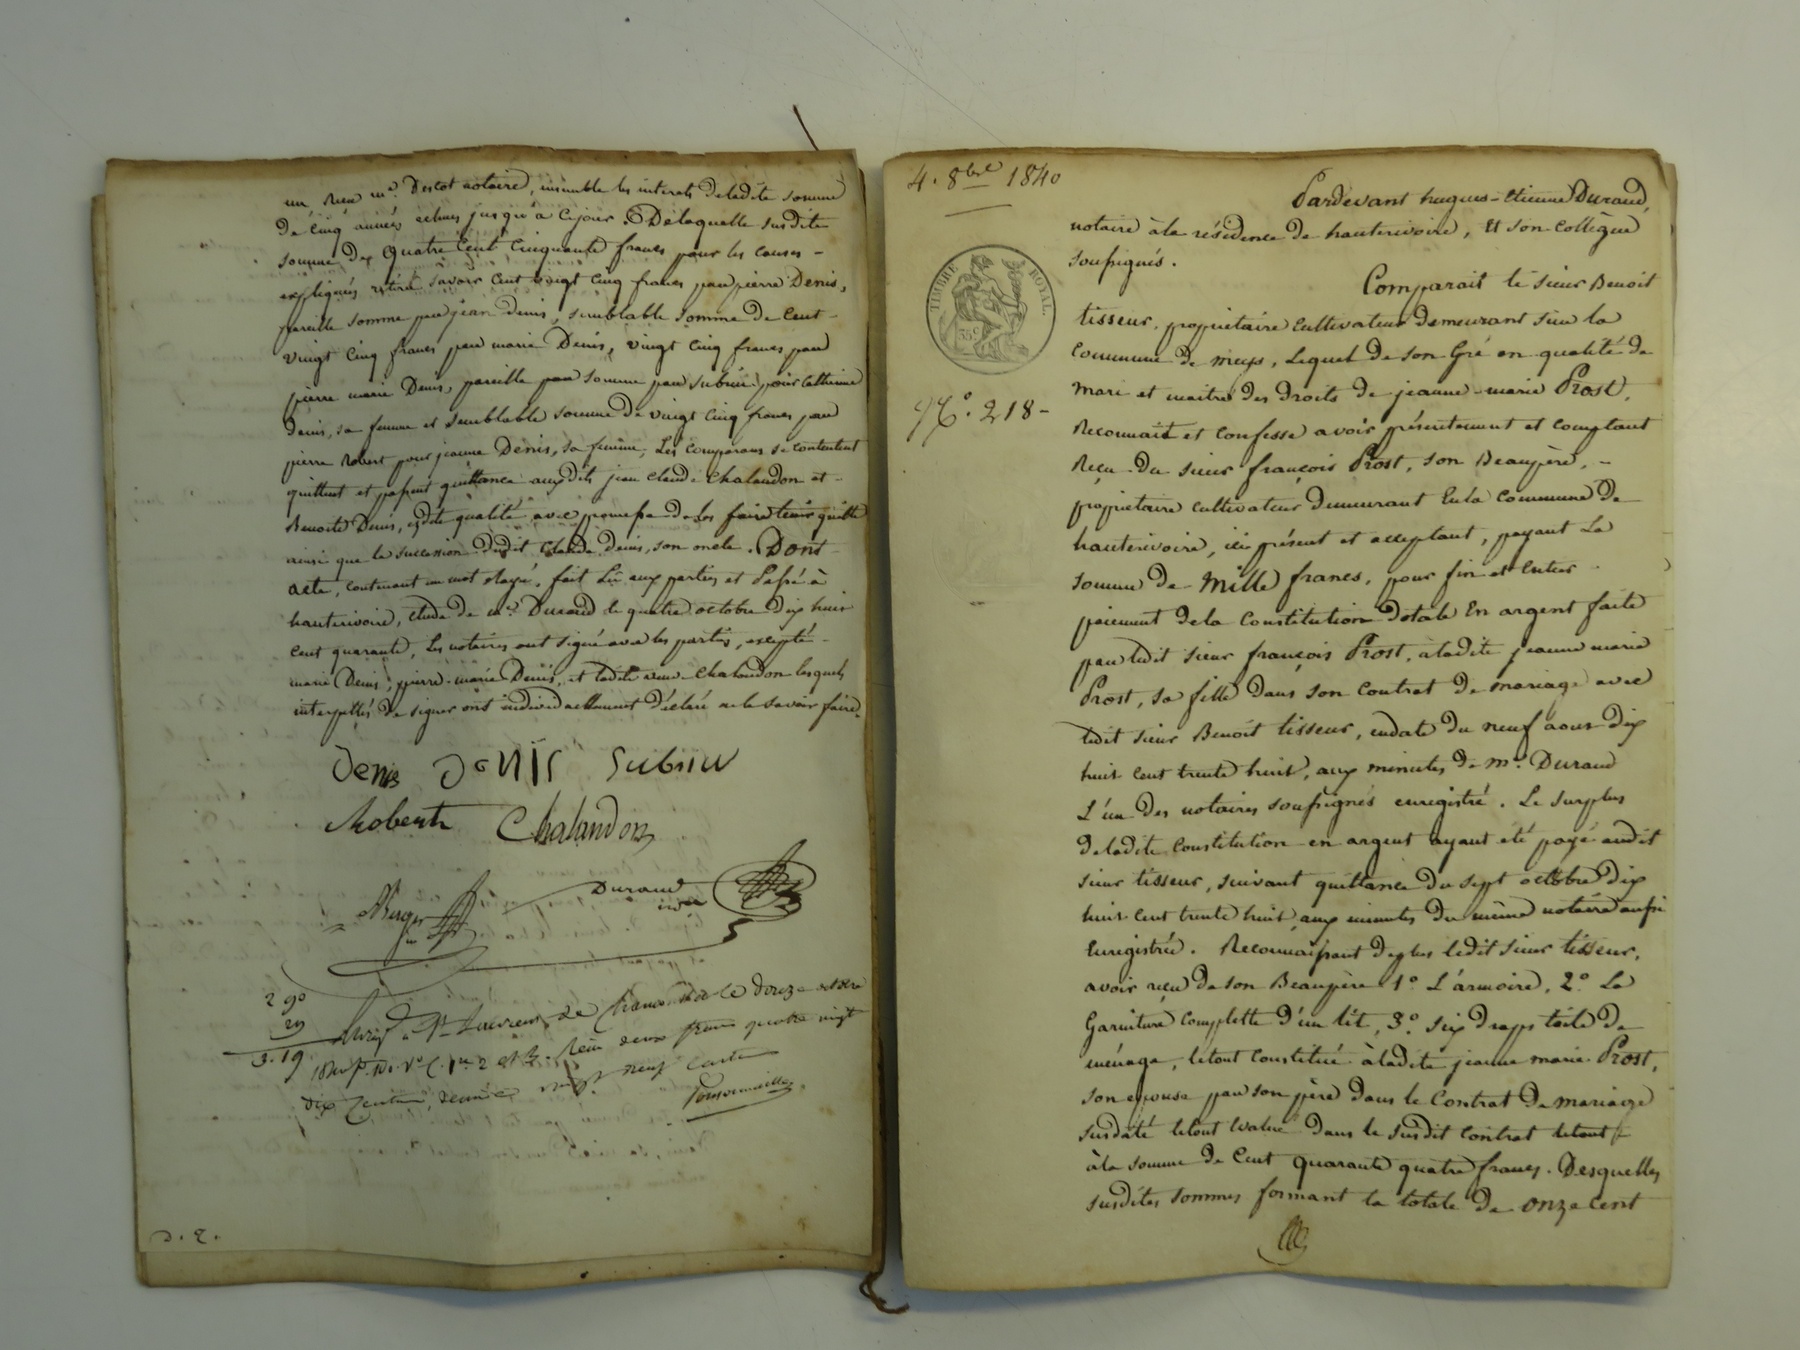 un reçu me. Descot notaire, ensemble les intérets deladite somme
de cinq années echues jusqu'à cejour. Delaquelle susdite
somme de quatre cent cinquante francs pour les causes -
expliquées retiré savoir cent vingt cinq francs par pierre Denis,
pareille somme par jean denis, semblable somme de cent -
vingt cinq francs par marie Denis, vingt cinq francs par
pierre marie Denis, pareille somme par subrin pour catherine
denis, sa femme et semblable somme de vingt cinq francs par
pierre Robert pour jeanne Denis, sa femme, Les comparans se contentent
quittent et passent quittance auxdits jean claude Chalandon et -
Benoite Denis, esdite qualité avec promesse de les faire tenir quitte
ainsi que la succession dudit Claude denis, son oncle. Dont
acte, contenant un mot rayé, fait Lu aux parties et Passé à
hauterivoire, étude de me. Durand le quatre octobre dix huit
cent quarante, Les notaires ont signé avec les parties, excepté -
marie Denis, pierre-marie Denis, et ladite veuve Chalandon lesquels
interpellés de signer ont individuellement déclaré ne le savoir faire.
Denis Denis Subrin
Robert Chalandon
Durand
2 90
29
3.19
Enregé à St Laurent de Chamousset le douze octobre
1840 f. 10. Vo C. 1re 2 et 3. Reçu deux francs quatre vingt
dix centimes, décime vingt neuf centimes
D. E.
4. 8bre 1840
Pardevant hugues-Etienne Durand,
notaire à la résidence de hauterivoire, Et son collègue
soussignés.
TIMBRE ROYAL
35c
Comparait le sieur Benoit
tisseur, propriétaire cultivateur demeurant sur la
commune de meys, Lequel de son Gré en qualité de
mari et maitre des droits de jeanne-marie Prost,
No. 218-
Reconnait et confesse avoir présentement et comptant
Reçu du sieur françois Prost, son Beaupère, -
propriétaire cultivateur demeurant En la commune de
hauterivoire, ici présent et acceptant, payant La
somme de Mille francs, pour fin et Entier
paiement dela Constitution dotale En argent faite
par ledit sieur françois Prost, à ladite jeanne marie
Prost, sa fille dans son contrat de mariage avec
ledit sieur Benoit tisseur, endate du neuf aout dix
huit cent trente huit, aux minutes de me. Durand
L'un des notaires soussignés enregistré. Le surplus
deladite constitution en argent ayant été payé audit
sieur tisseur, suivant quittance du sept octobre dix
huit cent trente huit, aux minutes du même notaire aussi
Enregistrée. Reconnaissant deplus ledit sieur tisseur,
avoir reçu de son Beaupère 1o. L'armoire, 2o. La
Garniture complette d'un lit, 3o. six draps toile de
ménage, letout constitué à ladite jeanne marie Prost,
son epouse par son père dans le Contrat de mariage
susdaté letout Evalué dans le susdit contrat letout
à la somme de Cent quarante quatre francs. Desquelles
susdites sommes formant la totale de onze cent